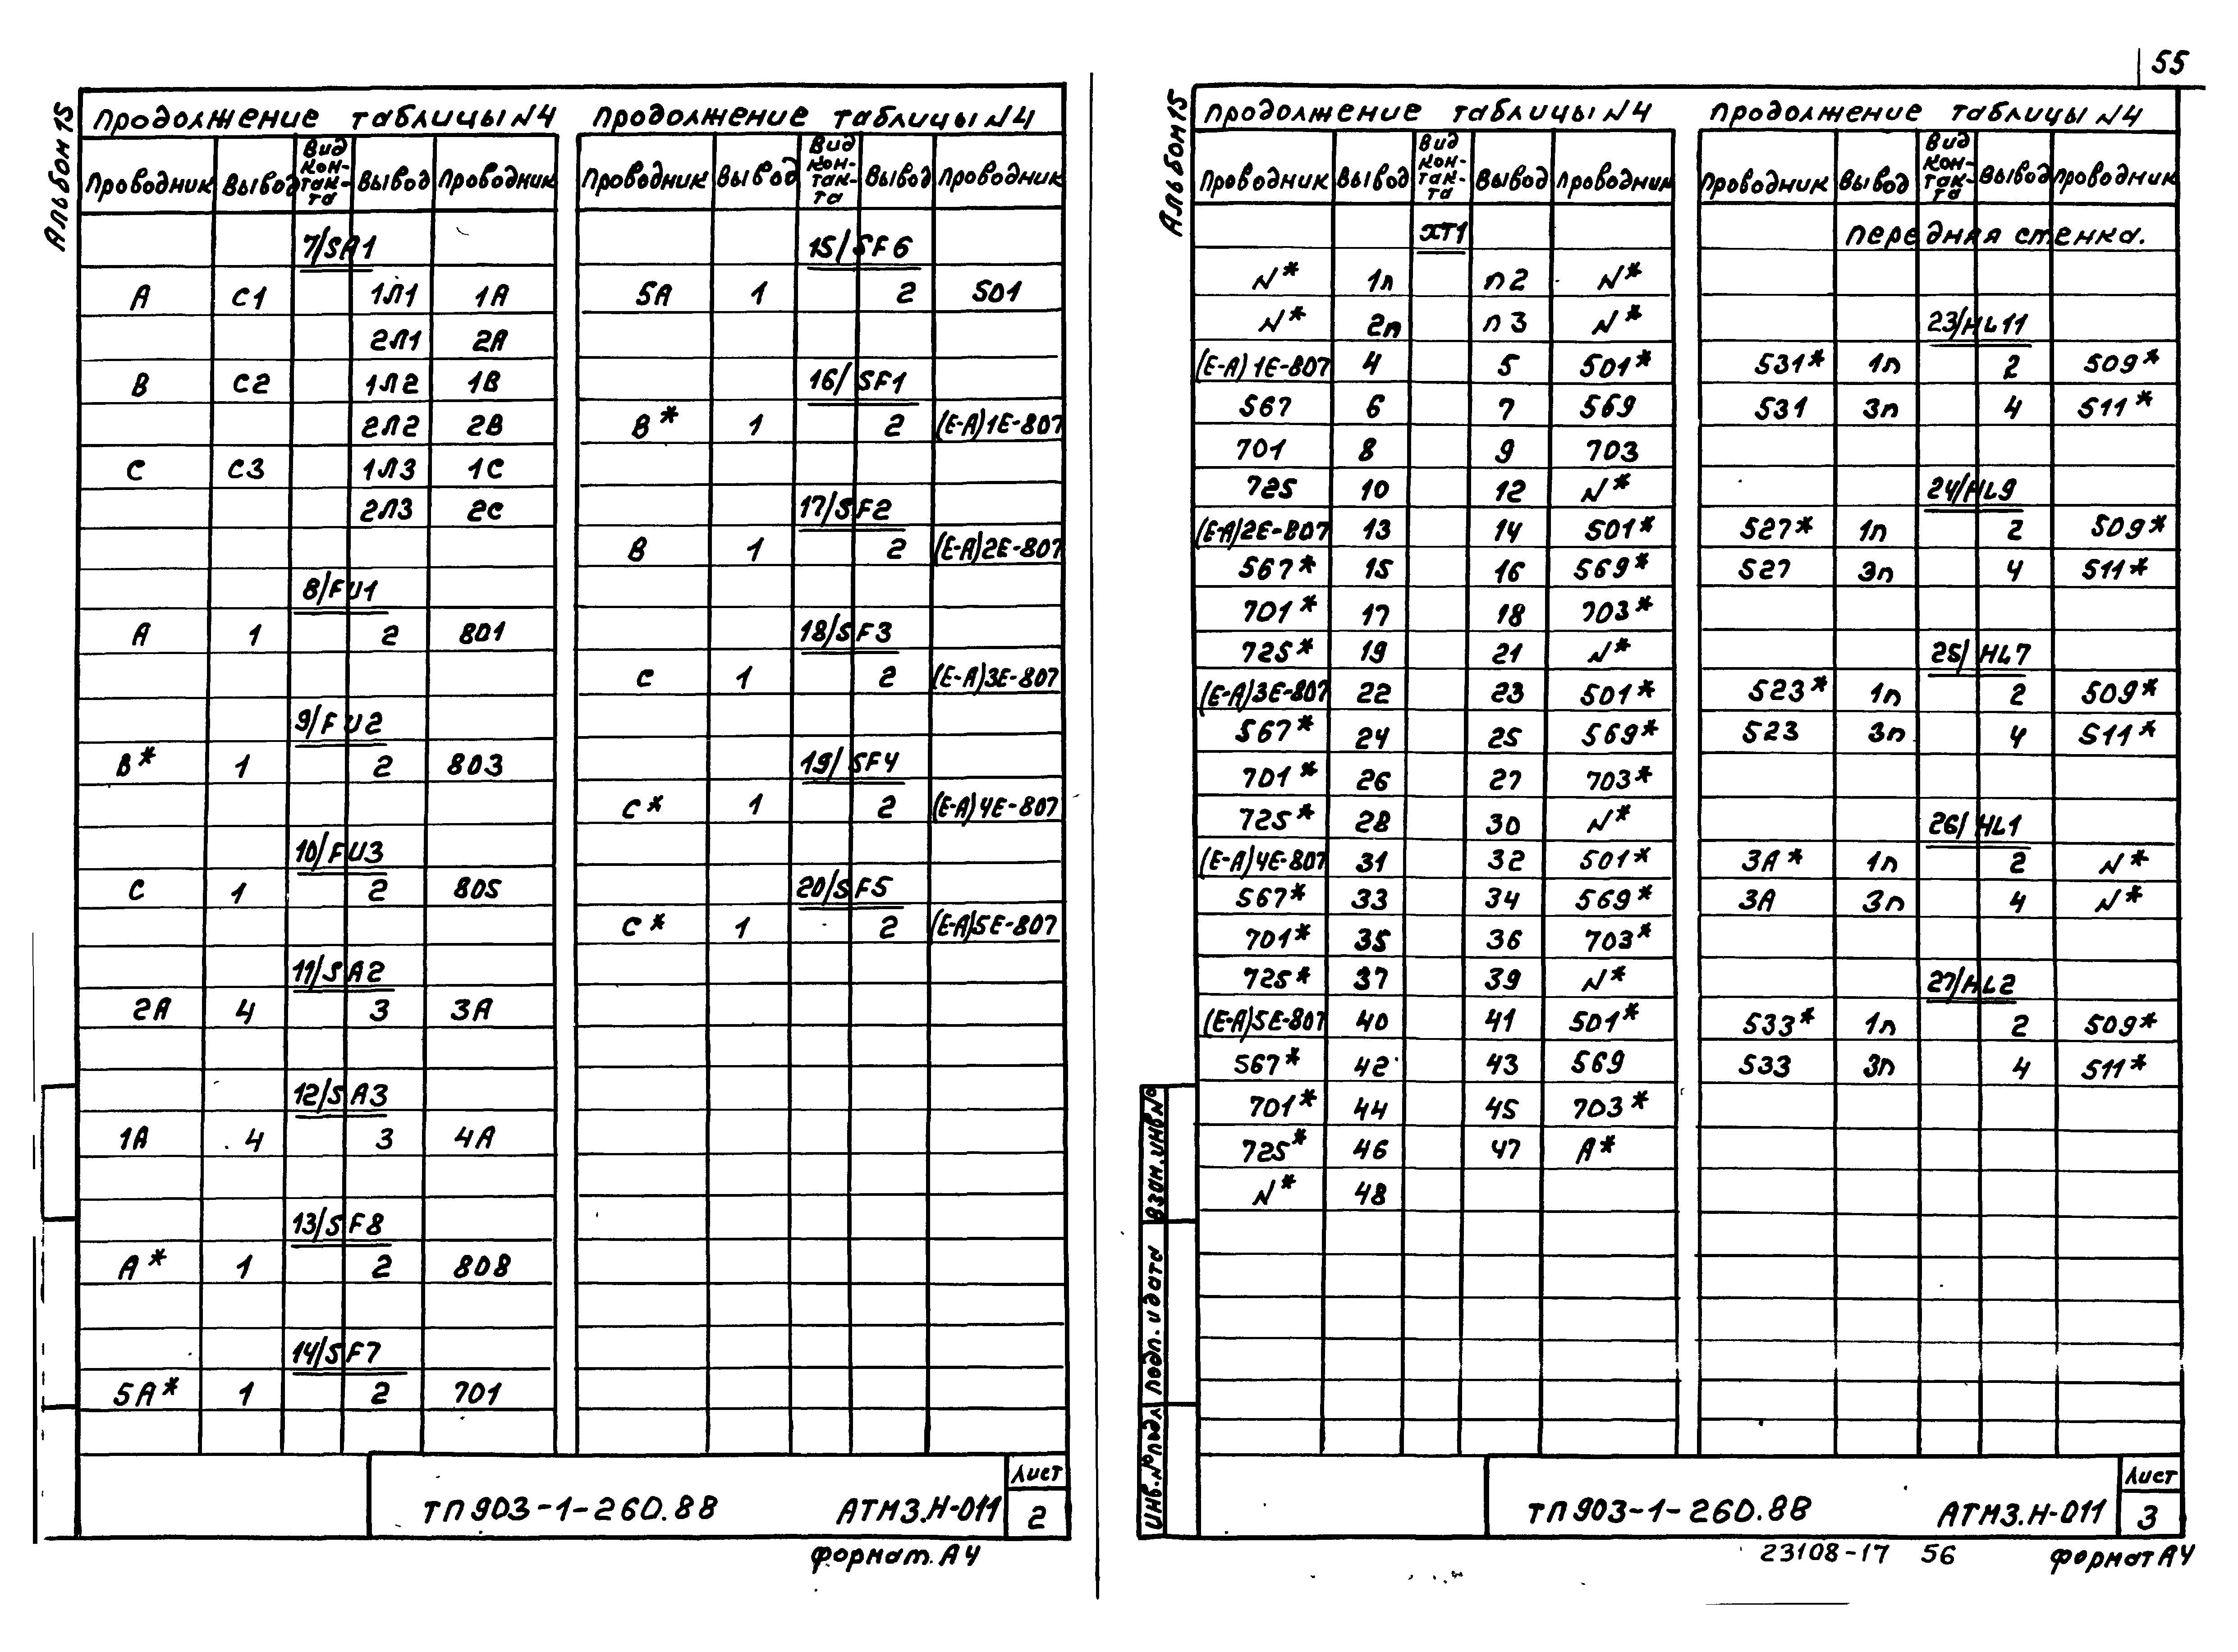 55
Альбом 15
Продолжение таблицы N4
Проводник Вывод Вид кон-так-та Вывод Проводник
7/SA1
А С1 1Л1 1А
2Л1 2А
В С2 1Л2 1В
2Л2 2В
С С3 1Л3 1С
2Л3 2С
8/FU1
А 1 2 801
9/FU2
В* 1 2 803
10/FU3
С 1 2 805
11/SA2
2А 4 3 3А
12/SA3
1А 4 3 4А
13/SF8
А* 1 2 808
14/SF7
5А* 1 2 701
Продолжение таблицы N4
Проводник Вывод Вид кон-так-та Вывод Проводник
15/SF6
5А 1 2 501
16/SF1
В* 1 2 (Е-А)1Е-807
17/SF2
В 1 2 (Е-А)2Е-807
18/SF3
С 1 2 (Е-А)3Е-807
19/SF4
С* 1 2 (Е-А)4Е-807
20/SF5
С* 1 2 (Е-А)5Е-807
ТП903-1-260.88 АТМ3.Н-011
Лист
2
формат. А4
Альбом 15
Продолжение таблицы N4
Проводник Вывод Вид кон-так-та Вывод Проводник
ХТ1
N* 1п п2 N*
N* 2п п3 N*
(Е-А)1Е-807 4 5 501*
567 6 7 569
701 8 9 703
725 10 12 N*
(Е-А)2Е-807 13 14 501*
567* 15 16 569*
701* 17 18 703*
725* 19 21 N*
(Е-А)3Е-807 22 23 501*
567* 24 25 569*
701* 26 27 703*
725* 28 30 N*
(Е-А)4Е-807 31 32 501*
567* 33 34 569*
701* 35 36 703*
725* 37 39 N*
(Е-А)5Е-807 40 41 501*
567* 42 43 569
701* 44 45 703*
725* 46 47 А*
N* 48
Продолжение таблицы N4
Проводник Вывод Вид кон-так-та Вывод Проводник
Передняя стенка.
23/HL11
531* 1п 2 509*
531 3п 4 511*
24/HL9
527* 1п 2 509*
527 3п 4 511*
25/HL7
523* 1п 2 509*
523 3п 4 511*
26/HL1
3А* 1п 2 N*
3А 3п 4 N*
27/HL2
533* 1п 2 509*
533 3п 4 511*
Взам.инв№
Подп. и дата
Инв.№подл
ТП903-1-260.88 АТМ3.Н-011
Лист
3
23108-17 56 формат А4